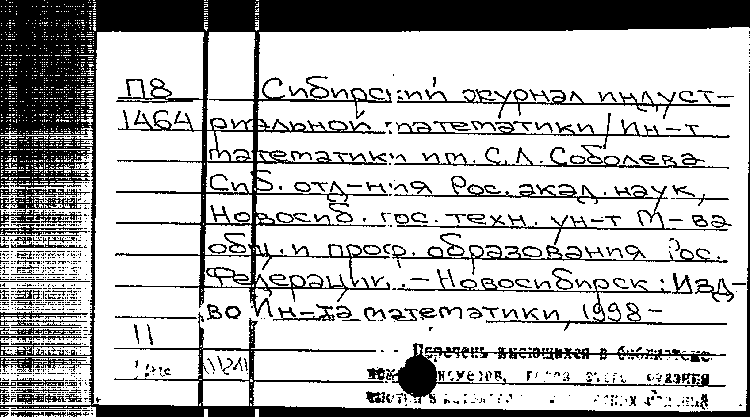 П8 Сибирский журнал индуст-
1464 риальной математики / Ин-т
математики им. С.Л. Соболева
Сиб. отд-ния Рос. акад. наук,
Новосиб. гос. техн. ун-т М-ва
общ. и проф. образования Рос.
Федерации. - Новосибирск: Изд-
во Ин-та математики, 1998 -
11
Перечень имеющихся в библиотеке